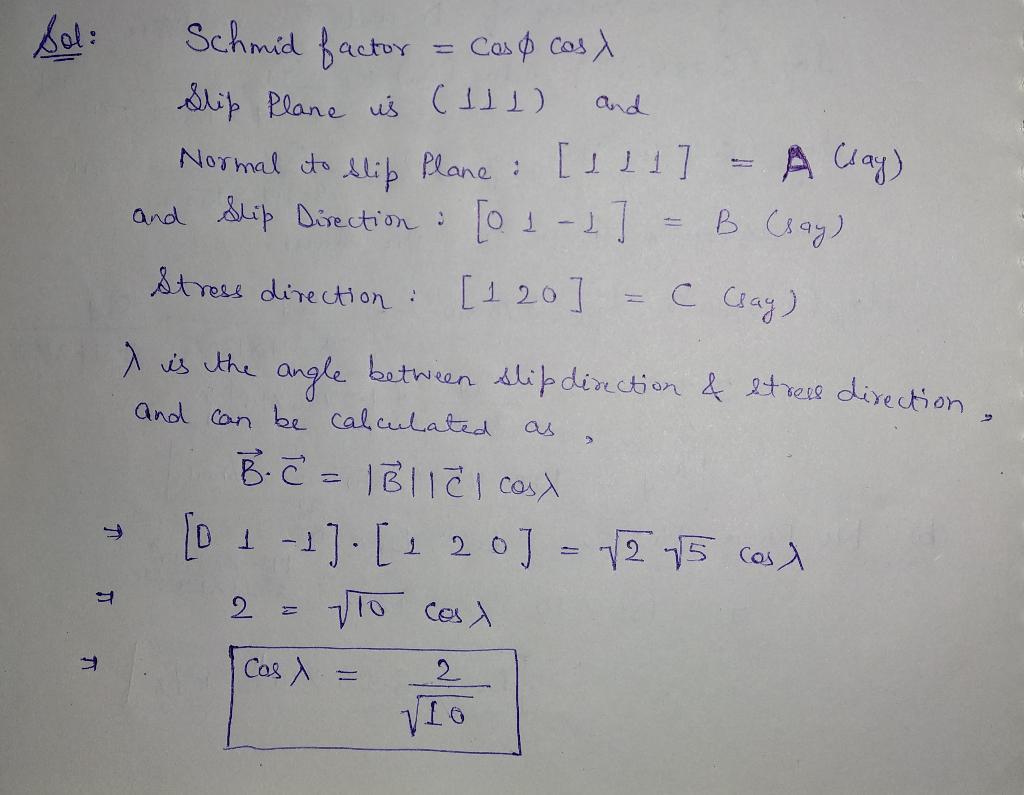 Sol: Schmid factor = Cos φ cos λ
Slip Plane is (111) and
Normal to Slip Plane : [1 1 1] = A (say)
and Slip Direction : [0 1 -1] = B (say)
Stress direction : [1 2 0] = C (say)
λ is the angle between slip direction & stress direction,
and can be calculated as ,
B⃗·C⃗ = |B⃗||C⃗| cos λ
⇒ [0 1 -1]·[1 2 0] = √2 √5 cos λ
⇒ 2 = √10 cos λ
⇒ Cos λ = 2/√10